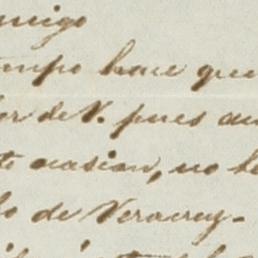 amigo
empo hace que
or de V. pues au
te ocasion, no h
lo de Veracruz.